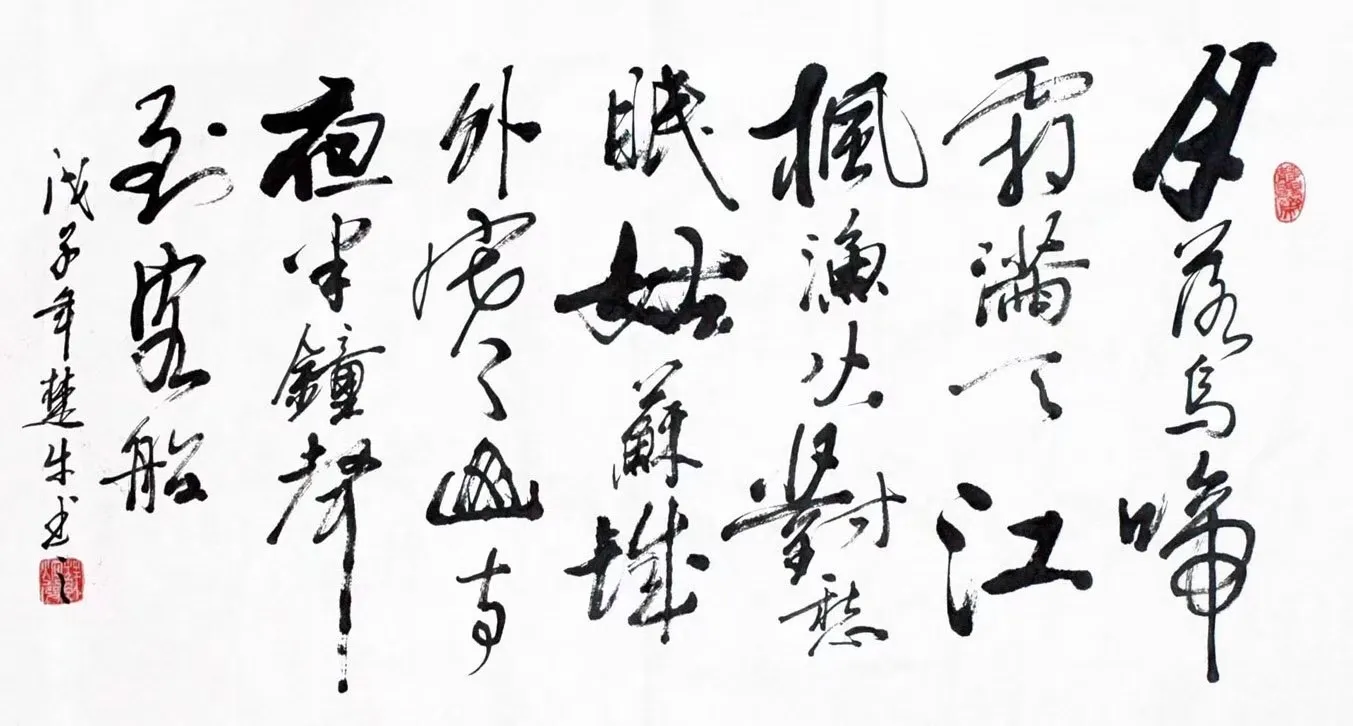 月落烏啼
霜滿天江
楓漁火對愁
眠姑蘇城
外寒山寺
夜半鐘聲
到客船
戊子年楚书之